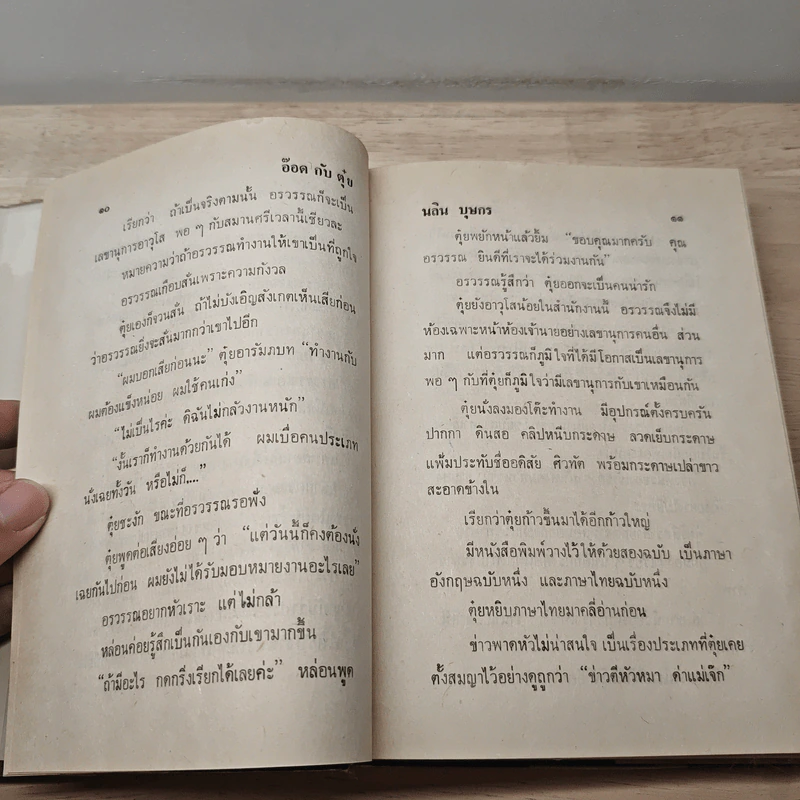 ๑๐
อ๊อด กับ ตุ๋ย
เรียกว่า ถ้าเป็นจริงตามนั้น อรวรรณก็จะเป็น
เลขานุการอาวุโส พอ ๆ กับสมานศรีเวลานี้เชียวละ
หมายความว่าถ้าอรวรรณทำงานให้เขาเป็นที่ถูกใจ
อรวรรณเกือบสั่นเพราะความกังวล
ตุ๋ยเองก็จวนสั่น ถ้าไม่บังเอิญสังเกตเห็นเสียก่อน
ว่าอรวรรณยิ่งจะสั่นมากกว่าเขาไปอีก
“ผมบอกเสียก่อนนะ” ตุ๋ยอารัมภบท “ทำงานกับ
ผมต้องแข็งหน่อย ผมใช้คนเก่ง”
“ไม่เป็นไรค่ะ ดิฉันไม่กลัวงานหนัก”
“งั้นเราก็ทำงานด้วยกันได้ ผมเบื่อคนประเภท
นั่งเฉยทั้งวัน หรือไม่ก็....”
ตุ๋ยชะงัก ขณะที่อรวรรณรอฟัง
ตุ๋ยพูดต่อเสียงอ่อย ๆ ว่า “แต่วันนี้ก็คงต้องนั่ง
เฉยกันไปก่อน ผมยังไม่ได้รับมอบหมายงานอะไรเลย”
อรวรรณอยากหัวเราะ แต่ไม่กล้า
หล่อนค่อยรู้สึกเป็นกันเองกับเขามากขึ้น
“ถ้ามีอะไร กดกริ่งเรียกได้เลยค่ะ” หล่อนพูด
นลิน บุษกร
๑๑
ตุ๋ยพยักหน้าแล้วยิ้ม “ขอบคุณมากครับ คุณ
อรวรรณ ยินดีที่เราจะได้ร่วมงานกัน”
อรวรรณรู้สึกว่า ตุ๋ยออกจะเป็นคนน่ารัก
ตุ๋ยยังอาวุโสน้อยในสำนักงานนี้ อรวรรณจึงไม่มี
ห้องเฉพาะหน้าห้องเจ้านายอย่างเลขานุการคนอื่น ส่วน
มาก แต่อรวรรณก็ภูมิใจที่ได้มีโอกาสเป็นเลขานุการ
พอ ๆ กับที่ตุ๋ยก็ภูมิใจว่ามีเลขานุการกับเขาเหมือนกัน
ตุ๋ยนั่งลงมองโต๊ะทำงาน มีอุปกรณ์ตั้งครบครัน
ปากกา ดินสอ คลิปหนีบกระดาษ ลวดเย็บกระดาษ
แฟ้มประทับชื่ออดิสัย ศิวทัต พร้อมกระดาษเปล่าขาว
สะอาดข้างใน
เรียกว่าตุ๋ยก้าวขึ้นมาได้อีกก้าวใหญ่
มีหนังสือพิมพ์วางไว้ให้ด้วยสองฉบับ เป็นภาษา
อังกฤษฉบับหนึ่ง และภาษาไทยฉบับหนึ่ง
ตุ๋ยหยิบภาษาไทยมาคลี่อ่านก่อน
ข่าวพาดหัวไม่น่าสนใจ เป็นเรื่องประเภทที่ตุ๋ยเคย
ตั้งสมญาไว้อย่างดูถูกว่า “ข่าวตีหัวหมา ด่าแม่เจ๊ก”